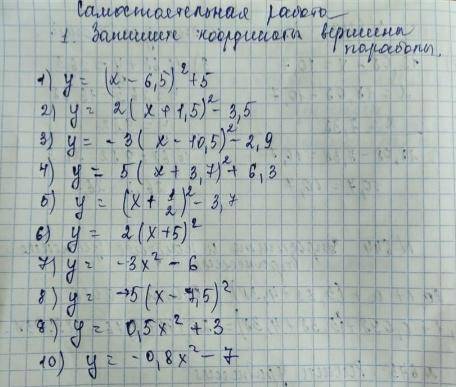 Самостоятельная работа
1. Запишите координаты вершины
параболы.
1) y = (x - 6,5)² + 5
2) y = 2(x + 1,5)² - 3,5
3) y = -3(x - 10,5)² - 2,9
4) y = 5(x + 3,7)² + 6,3
5) y = (x + 1/2)² - 3,7
6) y = 2(x+5)²
7) y = -3x² - 6
8) y = -5(x - 7,5)²
9) y = 0,5x² + 3
10) y = -0,8x² - 7